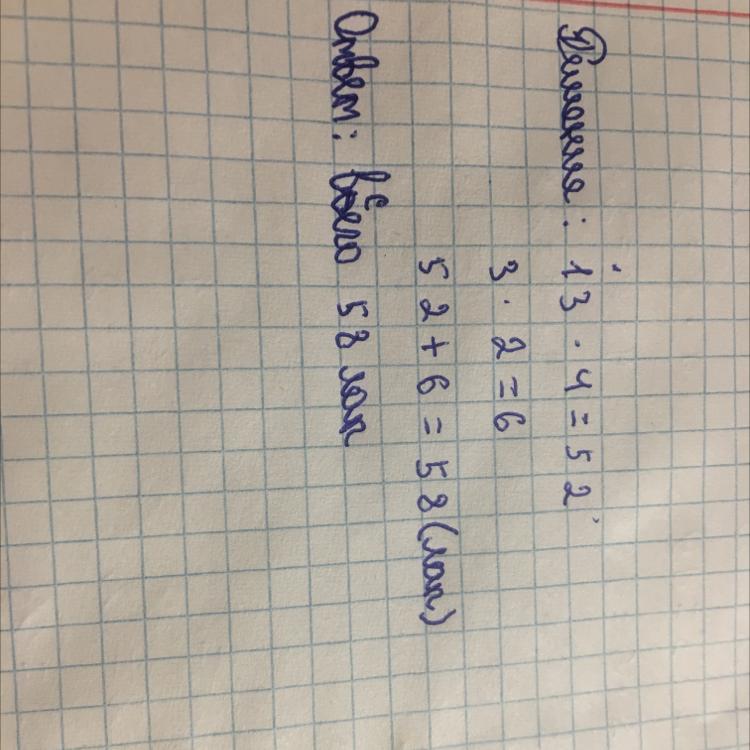 Решение: 13 · 4 = 52
3 · 2 = 6
52 + 6 = 58 (лап)
Ответ: всего 58 лап